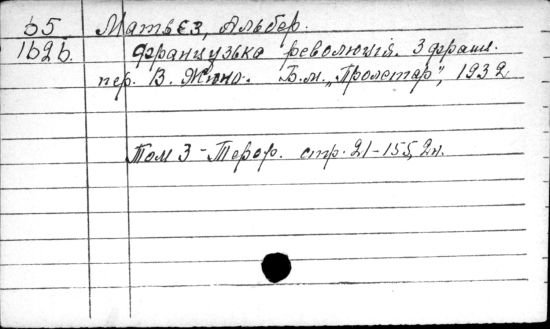 Б5 Матьєз, Альбер.
1626. Французька революція. З франц.
пер. В. Жино. Б.м. „Пролетар", 1932
Том 3 - Терор. стр. 21-155, 2н.